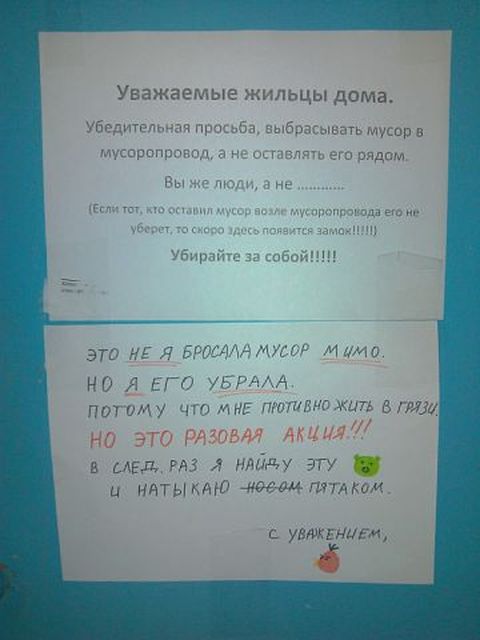 Уважаемые жильцы дома.
Убедительная просьба, выбрасывать мусор в
мусоропровод, а не оставлять его рядом.
Вы же люди, а не …………
(Если тот, кто оставил мусор возле мусоропровода его не
уберет, то скоро здесь появится замок!!!!!)
Убирайте за собой!!!!!
ЭТО НЕ Я БРОСАЛА МУСОР МИМО.
НО Я ЕГО УБРАЛА.
ПОТОМУ ЧТО МНЕ ПРОТИВНО ЖИТЬ В ГРЯЗИ.
НО ЭТО РАЗОВАЯ АКЦИЯ!!!
В СЛЕД. РАЗ Я НАЙДУ ЭТУ
И НАТЫКАЮ НОСОМ ПЯТАКОМ.
С УВАЖЕНИЕМ,